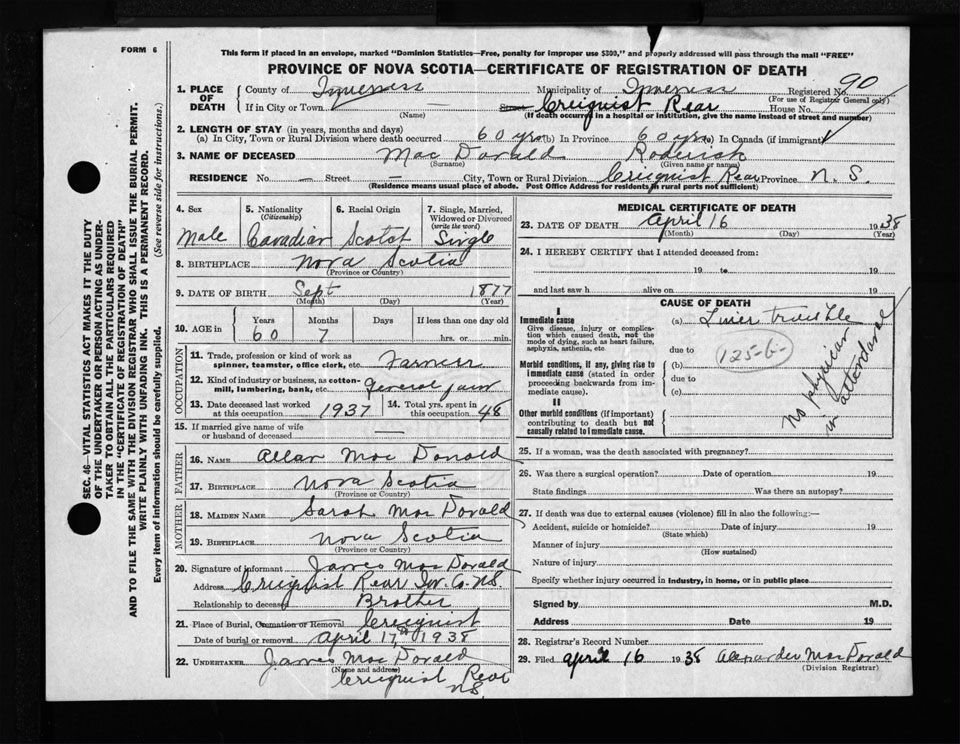 FORM 6
This form if placed in an envelope, marked "Dominion Statistics—Free, penalty for improper use $300," and properly addressed will pass through the mail "FREE"
PROVINCE OF NOVA SCOTIA—CERTIFICATE OF REGISTRATION OF DEATH
SEC. 46—VITAL STATISTICS ACT MAKES IT THE DUTY
OF THE UNDERTAKER OR PERSON ACTING AS UNDER-
TAKER TO OBTAIN ALL THE PARTICULARS REQUIRED
IN THE "CERTIFICATE OF REGISTRATION OF DEATH"
AND TO FILE THE SAME WITH THE DIVISION REGISTRAR WHO SHALL ISSUE THE BURIAL PERMIT.
WRITE PLAINLY WITH UNFADING INK. THIS IS A PERMANENT RECORD.
Every item of information should be carefully supplied. (See reverse side for instructions.)
1. PLACE OF DEATH County of Inverness Municipality of Inverness Registered No. 90
(For use of Registrar General only)
If in City or Town (Name) Street Creignist Rear House No.
(If death occurred in a hospital or institution, give the name instead of street and number)
2. LENGTH OF STAY (in years, months and days)
(a) In City, Town or Rural Division where death occurred 60 yrs (b) In Province 60 yrs (c) In Canada (if immigrant)
3. NAME OF DECEASED Mac Donald Roderick
(Surname) (Given name or names)
RESIDENCE No. — Street — City, Town or Rural Division Creignist Rear Province N. S.
(Residence means usual place of abode. Post Office Address for residents in rural parts not sufficient)
4. Sex Male
5. Nationality (Citizenship) Canadian
6. Racial Origin Scotch
7. Single, Married, Widowed or Divorced (write the word) Single
8. BIRTHPLACE Nova Scotia
(Province or Country)
9. DATE OF BIRTH Sept 1877
(Month) (Day) (Year)
10. AGE in Years 60 Months 7 Days If less than one day old hrs. or min.
OCCUPATION
11. Trade, profession or kind of work as spinner, teamster, office clerk, etc. Farmer
12. Kind of industry or business, as cotton-mill, lumbering, bank, etc. General farm
13. Date deceased last worked at this occupation 1937
14. Total yrs. spent in this occupation 48
15. If married give name of wife or husband of deceased —
FATHER
16. NAME Allan Mac Donald
17. BIRTHPLACE Nova Scotia
(Province or Country)
MOTHER
18. MAIDEN NAME Sarah Mac Donald
19. BIRTHPLACE Nova Scotia
(Province or Country)
20. Signature of Informant James Mac Donald
Address Creignist Rear Inv. Co. N.S.
Relationship to deceased Brother
21. Place of Burial, Cremation or Removal Creignist
Date of burial or removal April 17th 1938
22. UNDERTAKER James Mac Donald
(Name and address) Creignist Rear
N.S.
MEDICAL CERTIFICATE OF DEATH
23. DATE OF DEATH April 16 1938
(Month) (Day) (Year)
24. I HEREBY CERTIFY that I attended deceased from:
19 to 19
and last saw h alive on 19
CAUSE OF DEATH
I
Immediate cause
Give disease, injury or complication which caused death, not the mode of dying, such as heart failure, asphyxia, asthenia, etc.
(a) Liver trouble
due to
125-b-
Morbid conditions, if any, giving rise to immediate cause (stated in order proceeding backwards from immediate cause).
(b)
due to
(c)
II
Other morbid conditions (if important) contributing to death but not causally related to immediate cause.
No physician
in attendance
25. If a woman, was the death associated with pregnancy?
26. Was there a surgical operation? Date of operation 19
State findings Was there an autopsy?
27. If death was due to external causes (violence) fill in also the following:—
Accident, suicide or homicide? Date of injury 19
(State which)
Manner of injury
(How sustained)
Nature of injury
Specify whether injury occurred in industry, in home, or in public place
Signed by M.D.
Address Date 19
28. Registrar's Record Number
29. Filed April 16 1938 Alexander Mac Donald
(Division Registrar)